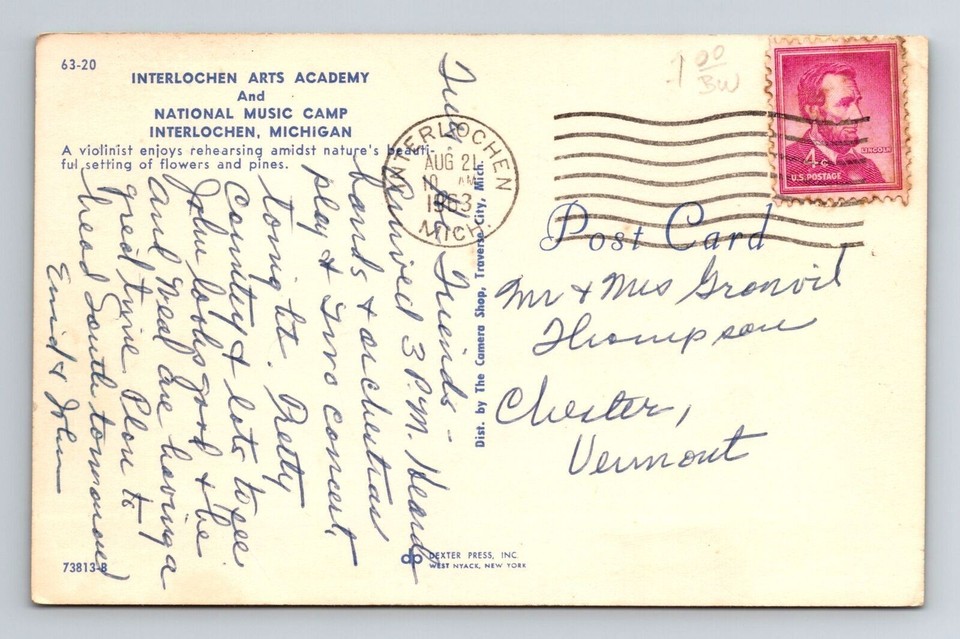 63-20
INTERLOCHEN ARTS ACADEMY
And
NATIONAL MUSIC CAMP
INTERLOCHEN, MICHIGAN
A violinist enjoys rehearsing amidst nature's beauti-
ful setting of flowers and pines.
Tues.
Friends -
Arrived 3 P.M. Heard
bands & orchestras
play & two concert,
tonight. Pretty
Country & lots to see
John looks good & he
and Neal are having a
great time. Plan to
head South tomorrow
Enid & John
73813-B
DEXTER PRESS, INC.
WEST NYACK, NEW YORK
Dist. by The Camera Shop, Traverse City, Mich.
INTERLOCHEN
AUG 21
AM
1963
MICH.
1 00
BW
LINCOLN
4 c
U.S. POSTAGE
Post Card
Mr & Mrs Granvil
Thompson
Chester,
Vermont